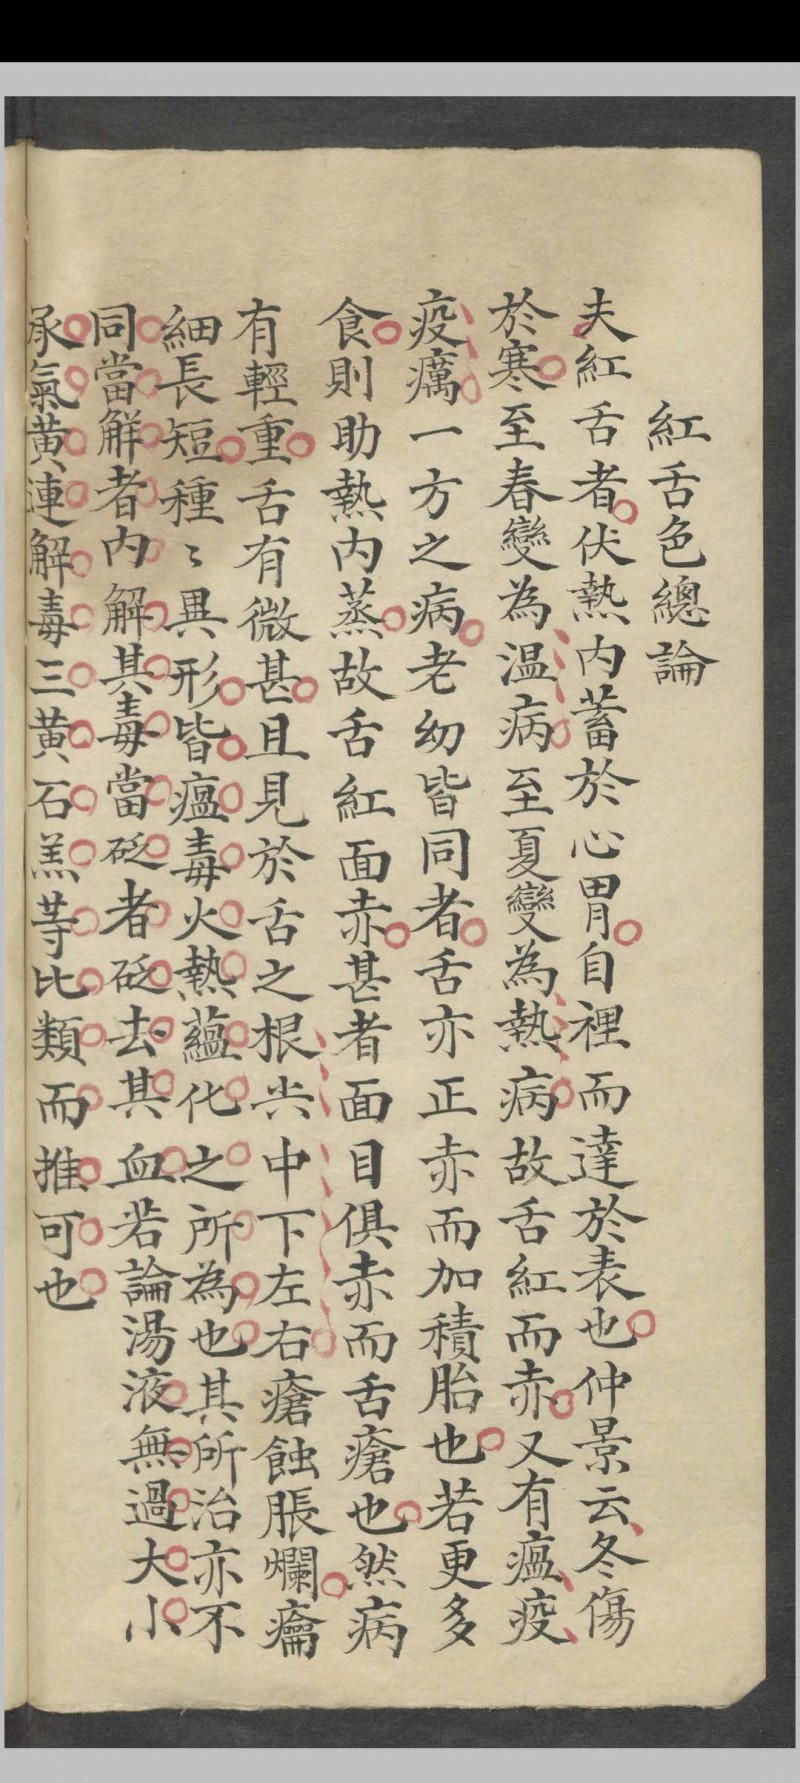 紅舌色總論
夫紅舌者伏熱内蓄於心胃自裡而達於表也仲景云冬傷
於寒至春變為温病至夏變為熱病故舌紅而赤又有瘟疫
疫癘一方之病老幼皆同者舌亦正赤而加積胎也若更多
食則助熱内蒸故舌紅面赤甚者面目俱赤而舌瘡也然病
有輕重舌有微甚且見於舌之根尖中下左右瘡蝕脹爛瘺
細長短種〻異形皆瘟毒火熱蘊化之所為也其所治亦不
同當解者内解其毒當砭者砭去其血若論湯液無過大小
承氣黄連解毒三黄石羔等比類而推可也